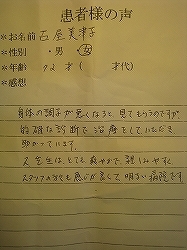 患者様の声
*お名前 石屋美津子
*性別 ・男・女
*年齢 72 才( 才代)
*感想
身体の調子が悪くなると見てもらうのですが
的確な診断で治療をしていただき
助かっています。
又先生はとても爽やかで親しみやすく
スタッフの方も感じが良くて明るい病院です